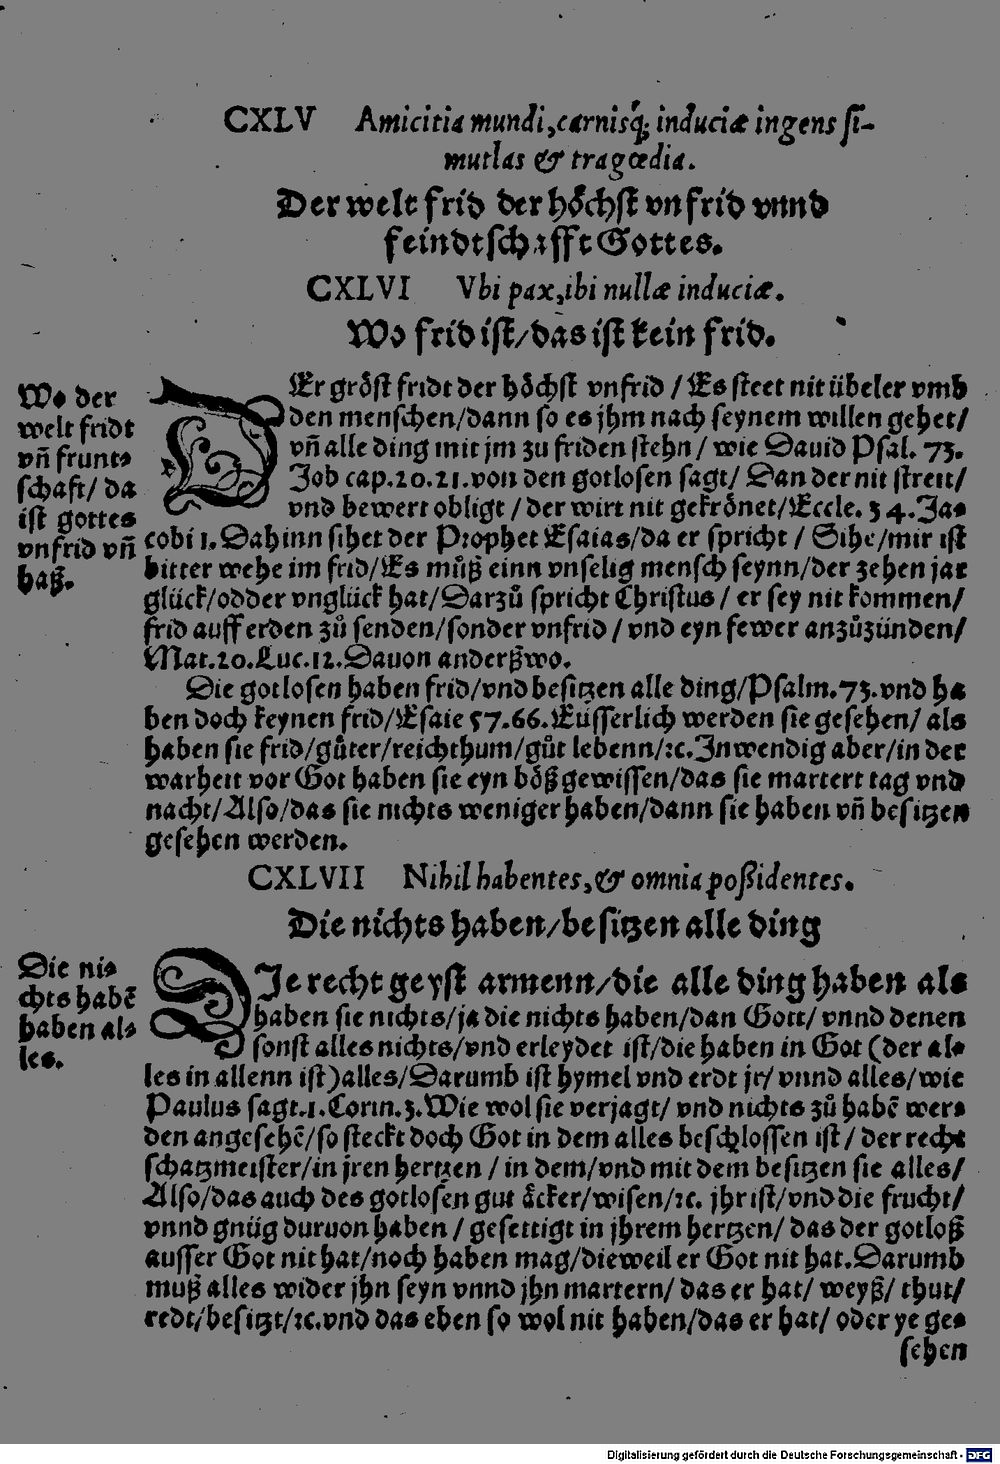 CXLV Amicitia mundi, carnisq́; induciæ ingens si-
mutlas & tragœdia.
Der welt frid der hoͤchst vnfrid vnnd
feindtschafft Gottes.
CXLVI Vbi pax, ibi nullæ induciæ.
Wo frid ist/das ist kein frid.
Wo der
welt fridt
vñ frunt⸗
schaft/ da
ist gottes
vnfrid vñ
haß.
DEr groͤst fridt der hoͤchst vnfrid / Es steet nit übeler vmb
den menschen/dann so es jhm nach seynem willen gehet/
vñ alle ding mit jm zu friden stehn / wie Dauid Psal. 73.
Job cap.20.21.von den gotlosen sagt/ Dan der nit streit/
vnd bewert obligt / der wirt nit gekroͤnet/Eccle. 34. Ja⸗
cobi 1. Dahinn sihet der Prophet Esaias/da er spricht / Sihe/mir ist
bitter wehe im frid/Es muͦß einn vnselig mensch seynn/der zehen jar
glück/odder vnglück hat/Darzuͦ spricht Christus / er sey nit kommen/
frid auff erden zuͦ senden/sonder vnfrid / vnd eyn fewer anzuͦzünden/
Mat.10.Luc.12.Dauon anderßwo.
Die gotlosen haben frid/vnd besitzen alle ding/Psalm.73.vnd ha
ben doch keynen frid/Esaie 57.66.Eüsserlich werden sie gesehen/ als
haben sie frid/guͤter/reichthum/guͦt lebenn/ꝛc.Inwendig aber/in der
warheit vor Got haben sie eyn boͤß gewissen/das sie martert tag vnd
nacht/Also/das sie nichts weniger haben/dann sie haben vñ besitzen
gesehen werden.
CXLVII Nihil habentes, & omnia poßidentes.
Die nichts haben/besitzen alle ding
Die ni⸗
chts habẽ
haben al⸗
les.
DIe recht geyst armenn/die alle ding haben als
haben sie nichts/ja die nichts haben/dan Gott/ vnnd denen
sonst alles nichts/vnd erleydet ist/die haben in Got (der al⸗
les in allenn ist)alles/Darumb ist hymel vnd erdt jr/ vnnd alles/wie
Paulus sagt.1.Corin.3.Wie wol sie verjagt/ vnd nichts zuͦ habẽ wer⸗
den angesehẽ/so steckt doch Got in dem alles beschlossen ist / der recht
schatzmeister/in jren hertzen / in dem/vnd mit dem besitzen sie alles/
Also/das auch des gotlosen gut aͤcker/wisen/ꝛc. jhr ist/vnd die frucht/
vnnd gnüg daruon haben / gesettigt in jhrem hertzen/ das der gotloß
ausser Got nit hat/noch haben mag/dieweil er Got nit hat.Darumb
muß alles wider jhn seyn vnnd jhn martern/ das er hat/ weyß/ thut/
redt/besitzt/ꝛc.vnd das eben so wol nit haben/das er hat/ oder ye ge⸗
sehen
Digitalisierung gefördert durch die Deutsche Forschungsgemeinschaft - DFG